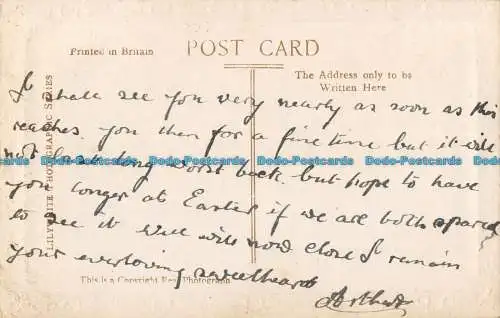 Printed in Britain
POST CARD
The Address only to be
Written Here
LILYWHITE PHOTOGRAPHIC SERIES
I shall see you very nearly as soon as this
reaches you then for a fine time but it will
not last long worst back. but hope to have
you longer at Easter if we are both spared
to see it Well will now close I remain
your everloving sweetheart
Arthur
This is a Copyright Real Photograph
Dodo-Postcards Dodo-Postcards Dodo-Postcards Dodo-Postcards Dodo-Postcards